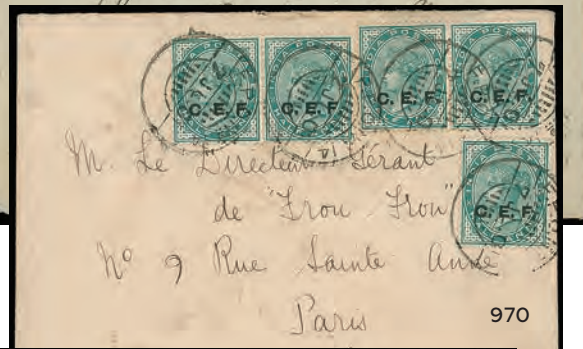 C. E. F. C. E. F. C. E. F. C. E. F.
C. E. F.
M. Le Directeur Gérant
de "Frou Frou"
No 9 Rue Sainte Anne
Paris
970